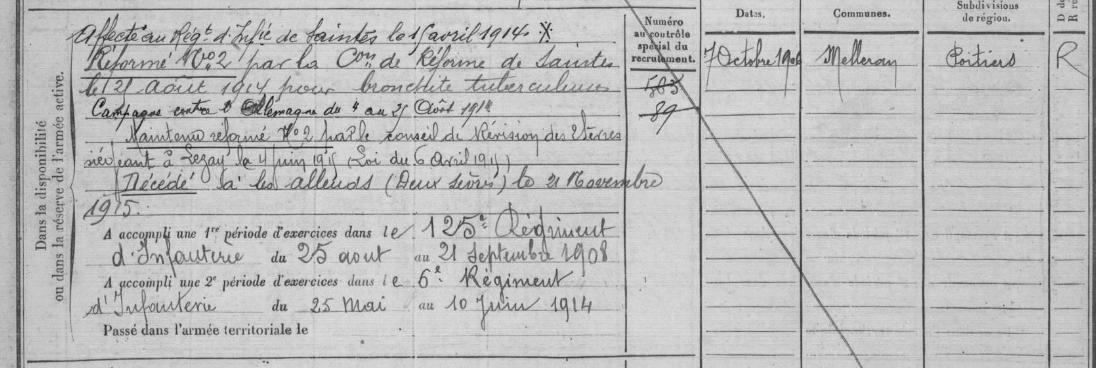 Dans la disponibilité
ou dans la réserve de l'armée active.
Affecté au Régt d'Infie de Saintes le 1er avril 1914
Réformé No 2 par la Con de Réforme de Saintes
le 21 août 1914 pour bronchite tuberculeuse
Campagne contre l'Allemagne du 4 au 21 Août 1914
Maintenu réformé No 2 par le conseil de Révision des 2 Sèvres
séant à Lezay le 4 juin 1915 (Loi du 6 Avril 1915)
Décédé à les alleuds (Deux Sèvres) le 21 Novembre
1915.
A accompli une 1re période d'exercices dans le 125e Régiment
d'Infanterie du 25 aout au 21 septembre 1908
A accompli une 2e période d'exercices dans le 6e Régiment
d'Infanterie du 25 Mai au 10 Juin 1914
Passé dans l'armée territoriale le
Numéro
au contrôle
spécial du
recrutement.
583
89
Dates.
Communes.
Subdivisions
de région.
D
R
7 Octobre 1906
Melleran
Poitiers
R